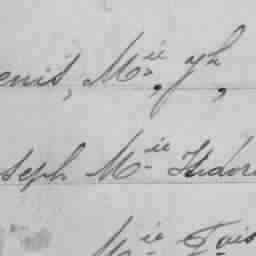 enis, M.ie, Jh,
seph M.ie Isidor
M.ie Fois